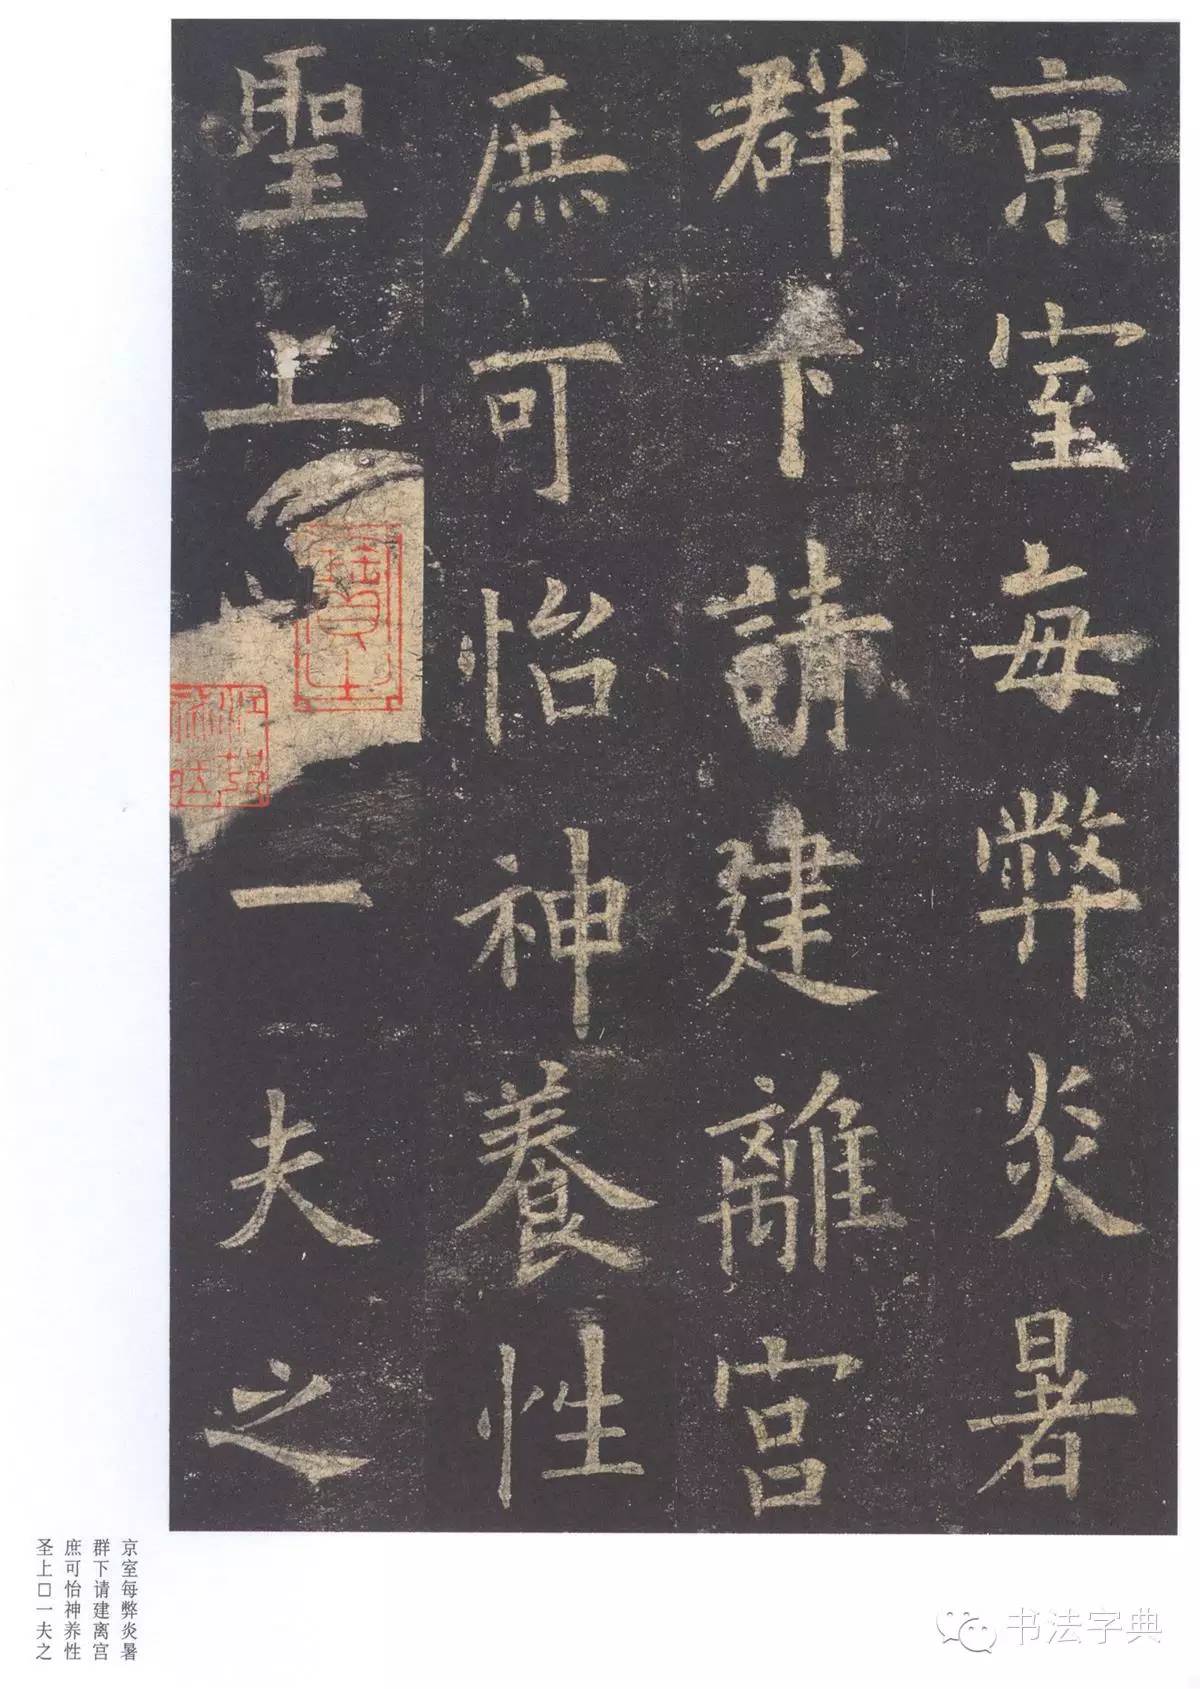 京室每弊炎暑
群下請建離宮
庶可怡神養性
聖上一夫之
京室每弊炎暑
群下请建离宫
庶可怡神养性
圣上□一夫之
书法字典